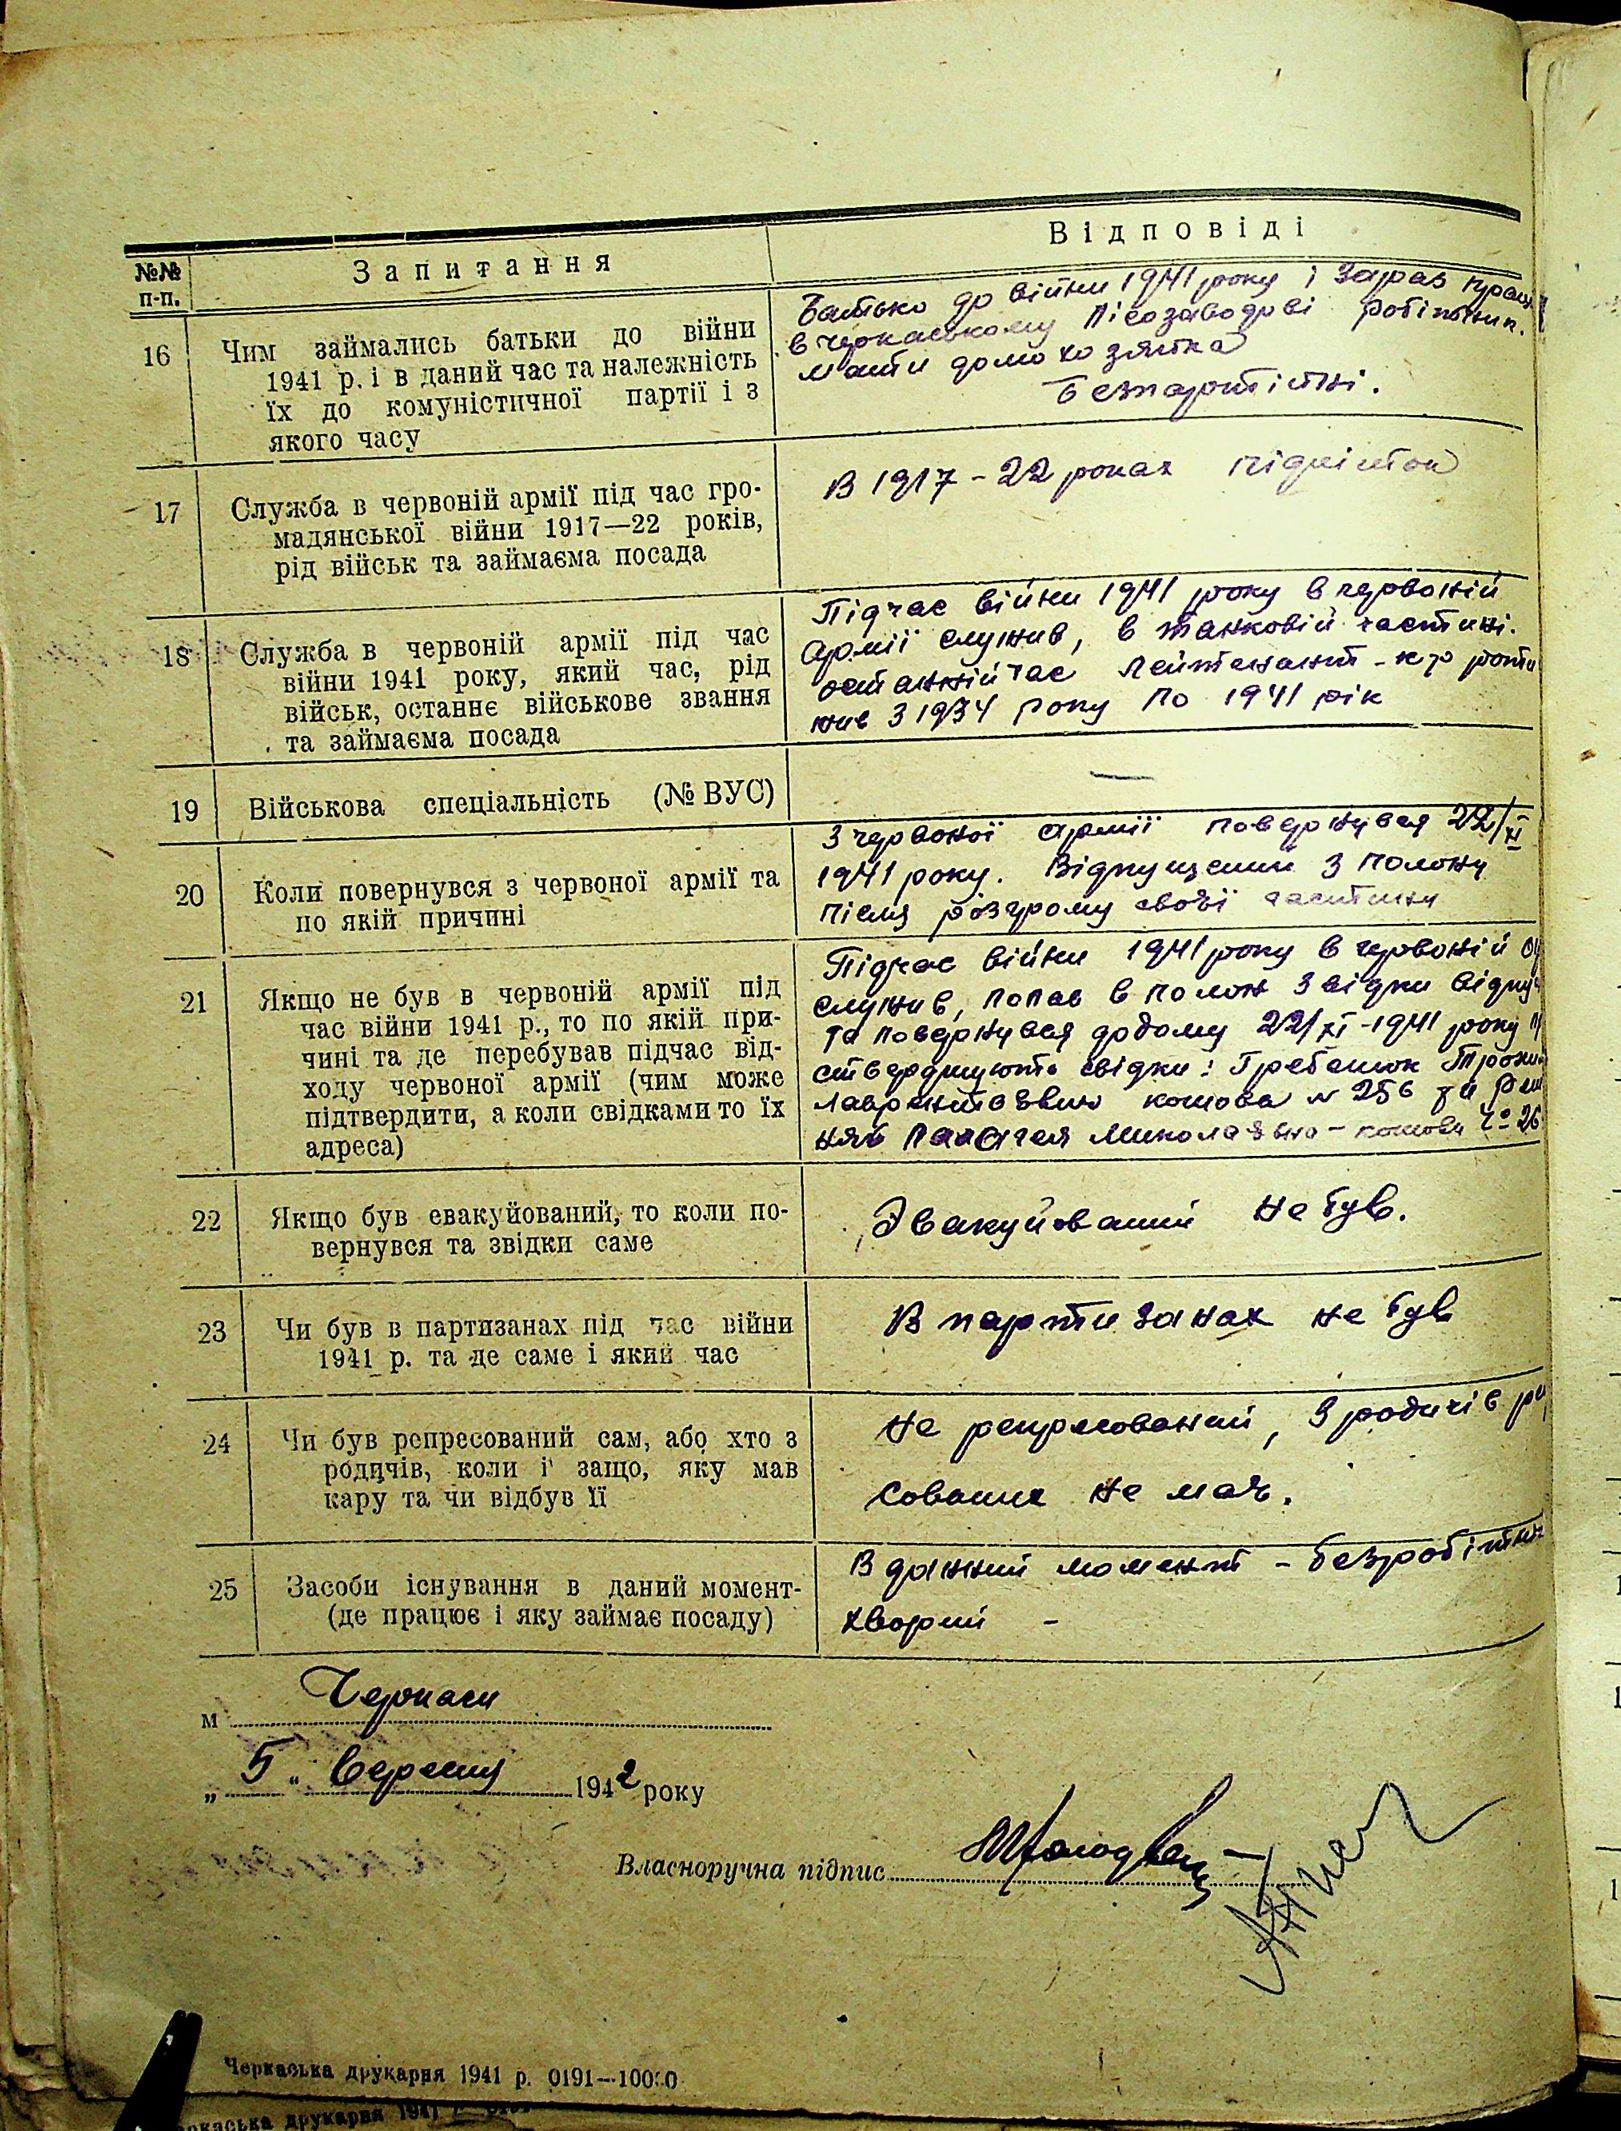 №№ п-п.
Запитання
Відповіді
16
Чим займались батьки до війни
1941 р. і в даний час та належність
їх до комуністичної партії і з
якого часу
Батько до війни 1941 року і зараз працю
в черкаському Лісозаводові робітник.
мати домохозяйка
Безпартійні.
17
Служба в червоній армії під час гро-
мадянської війни 1917—22 років,
рід військ та займаєма посада
В 1917-22 роках підліток
18
Служба в червоній армії під час
війни 1941 року, який час, рід
військ, останнє військове звання
та займаєма посада
Підчас війни 1941 року в червоній
армії служив, в танковій частині.
останній час Лейтенант - к-р роти
з 1934 року по 1941 рік
19
Військова спеціальність (№ ВУС)
—
20
Коли повернувся з червоної армії та
по якій причині
З червоної армії повернувся 22/XI
1941 року. Відпущений з полону
після розгрому своєї частини
21
Якщо не був в червоній армії під
час війни 1941 р., то по якій при-
чині та де перебував підчас від-
ходу червоної армії (чим може
підтвердити, а коли свідками то їх
адреса)
Підчас війни 1941 року в червоній
служив, попав в полон звідки відпу
та повернувся додому 22/XI-1941 року
ствержують свідки: Гребенюк
кошова № 256 та
Миколаївна - кошова Ч° 26
22
Якщо був евакуйований, то коли по-
вернувся та звідки саме
Эвакуйований не був.
23
Чи був в партизанах під час війни
1941 р. та де саме і який час
В партизанах не був
24
Чи був репресований сам, або хто з
родичів, коли і защо, яку мав
кару та чи відбув її
Не репресований, з родичів ре
сованих не маю.
25
Засоби існування в даний момент-
(де працює і яку займає посаду)
В данний момент - безробітн
хворий -
м Черкаси
„ 5 “ вересня 1942 року
Власноручна підпис
Черкаська друкарня 1941 р. 0191—10000
друкарня 1941